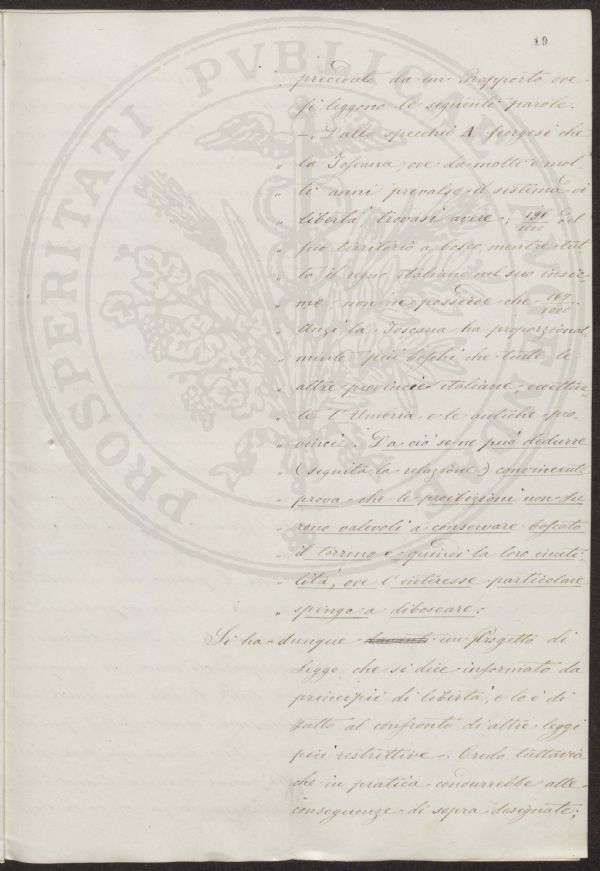 19
preceduto da un Rapporto ove
si leggono le seguenti parole.
—. Dallo specchio A scorgesi che
" la Toscana, ove da molti e mol-
" ti anni prevalse il sistema di
" libertà, trovasi avere i 191/1000 del
" suo territorio a bosco, mentre tut-
" to il regno italiano nel suo insie-
" me non ne possiede che 167/1000.
" Anzi la Toscana ha proporzional-
" mente più boschi che tutte le
" altre provincie italiane, eccettua-
" te l'Umbria e le antiche pro-
" vincie. Da ciò se ne può dedurre
" (seguita la relazione) convincente
" prova che le proibizioni non fu-
" rono valevoli a conservare boscato
" il terreno e quindi la loro inuti-
" lità, ove l'interesse particolare
" spinge a diboscare.
Si ha dunque un Progetto di
Legge, che si dice informato da
principii di libertà, e lo è di
fatto al confronto di altre leggi
più restrittive. Credo tuttavia
che in pratica condurrebbe alle
conseguenze di sopra designate;
PROSPERITATI PVBLICAE AVGENDAE